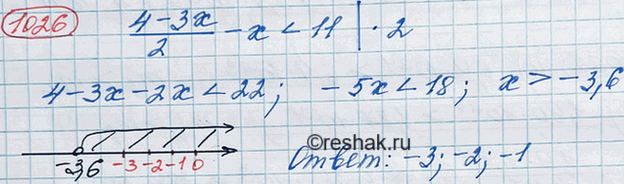 1026 (4-3x)/2 - x < 11 | · 2
4-3x-2x<22; -5x<18; x>-3,6
-3,6 -3 -2 -1 0
©reshak.ru
Ответ: -3; -2; -1